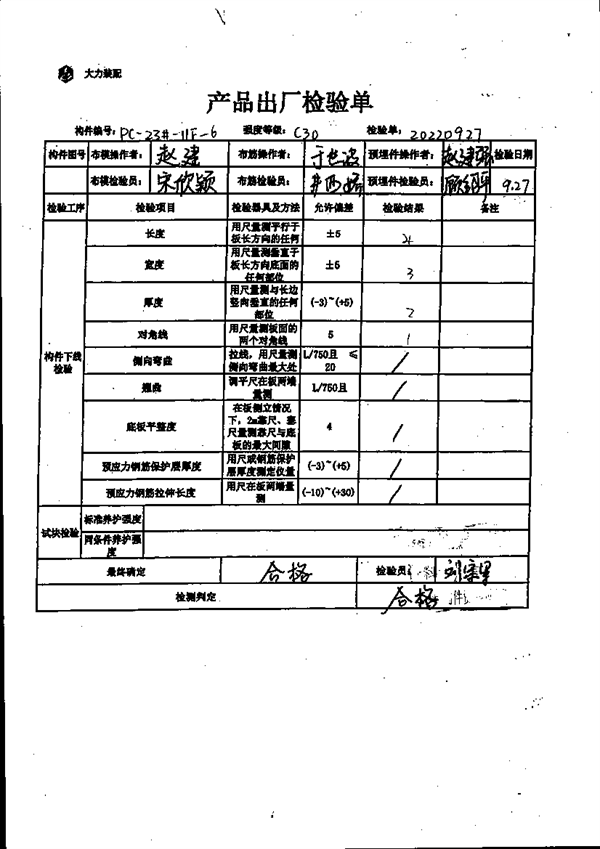 大力装配
产品出厂检验单
构件编号: PC-23#-11F-6 强度等级: C30 检验单: 20220927
构件图号 布模操作者: 赵建 布筋操作者: 于世波 预埋件操作者: 赵建强 检验日期
布模检验员: 宋欣颖 布筋检验员: 预埋件检验员: 9.27
检验工序 检验项目 检验器具及方法 允许偏差 检验结果 备注
构件下线检验
长度 用尺量测平行于板长方向的任何 ±5 4
宽度 用尺量测垂直于板长方向底面的任何部位 ±5 3
厚度 用尺量测与长边竖向垂直的任何部位 (-3)~(+5) 2
对角线 用尺量测板面的两个对角线 5 1
侧向弯曲 拉线，用尺量测侧向弯曲最大处 L/750且 ≤20 /
翘曲 调平尺在板两端量测 L/750且 /
底板平整度 在板侧立情况下，2m靠尺、塞尺量测靠尺与底板的最大间隙 4 /
预应力钢筋保护层厚度 用尺或钢筋保护层厚度测定仪量 (-3)~(+5) /
预应力钢筋拉伸长度 用尺在板两端量测 (-10)~(+30) /
试块检验 标准养护强度
同条件养护强度
最终确定 合格 检验员:
检测判定 合格